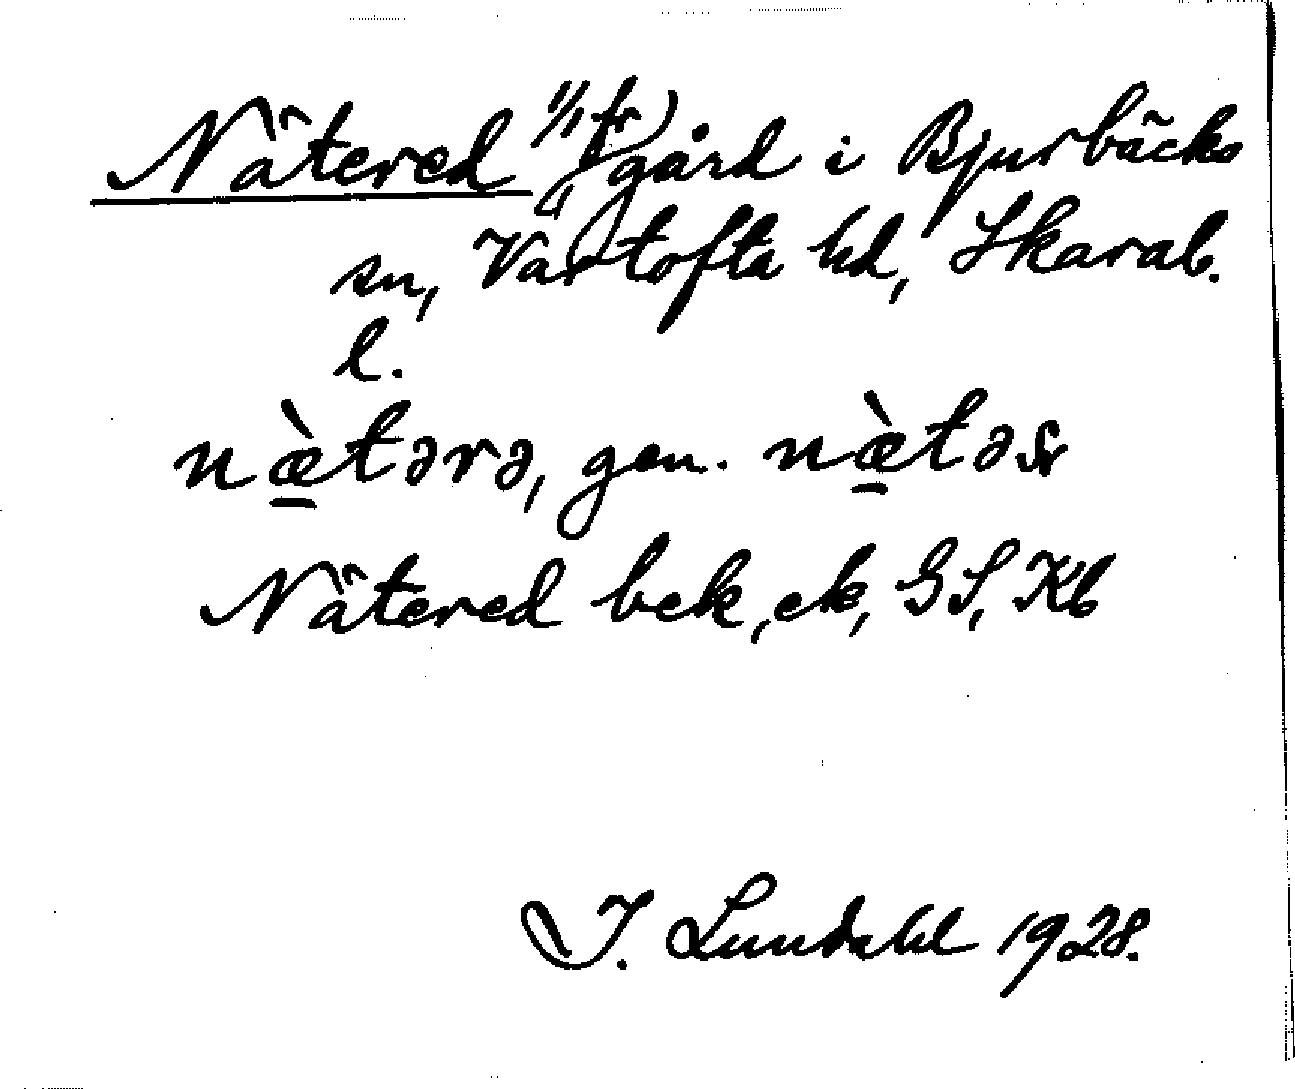 Nätered 1/1 fr) gård i Bjurbäcks
sn, Vartofta hd, Skarab.
l.
næ̠̀tərə, gen. næ̠̀təs
Nätered bek, ek, GS, Kb
I. Lundahl 1928.